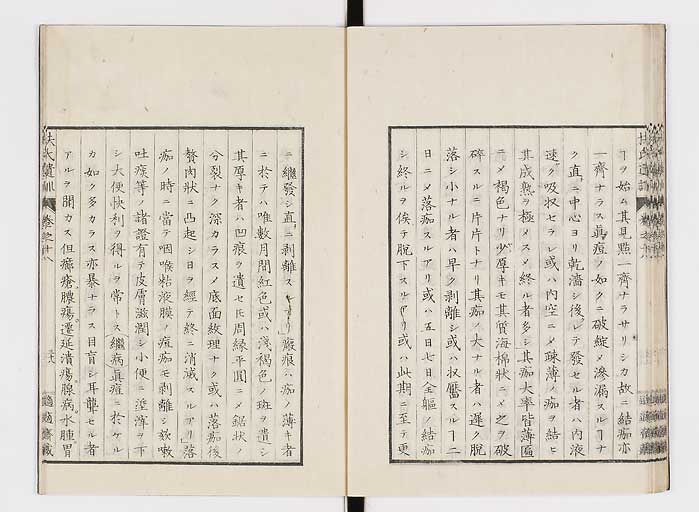 ヿヲ始ム其見點一齊ナラサリシカ故ニ結痂亦
一齊ナラス眞痘ノ如クニ破綻〆滲漏スルヿナ
ク直ニ中心ヨリ乾濇シ後レテ發セル者ハ内液
速ク吸収セラレ或ハ内空ニ〆疎薄ノ痂ヲ結ヒ
其成熟ヲ極メス〆終ル者多シ其痂大率皆薄匾
ニ〆褐色ナリ少厚キモ其質海綿状ニ〆之ヲ破
碎スルニ片片トナリ其痂ノ大ナル者ハ遅ク脱
落シ小ナル者ハ早ク剥離シ或ハ収靨スルヿ二
日ニ〆落痂スルアリ或ハ五日七日全軀ノ結痂
シ終ルヲ俟テ脱下スルアリ或ハ此期ニ至テ更
ニ繼發シ直ニ剥離ス 瘢痕ハ痂ノ薄キ者
ニ於テハ唯數月間紅色或ハ浅褐色ノ斑ヲ遺シ
其厚キ者ハ凹痕ヲ遺セ𪜈周縁平圓ニ〆鋸状ノ
分裂ナク深カラス〆底面紋理ナク或ハ落痂後
贅肉状ニ凸起シ日ヲ經テ終ニ消滅スルアリ落
痂ノ時ニ當テ咽喉粘液膜ノ痘痂モ剥離シ欬嗽
吐痰等ノ諸證有テ皮膚滋潤シ小便ニ 滓ヲ下
シ大便快利ヲ得ルヲ常トス繼病眞痘ニ於ケル
カ如ク多カラス亦暴ナラス目盲シ耳聾セル者
アルヲ聞カス但癤瘡膿瘍遷延潰瘍腺病水腫胃
扶氏遺訓 卷